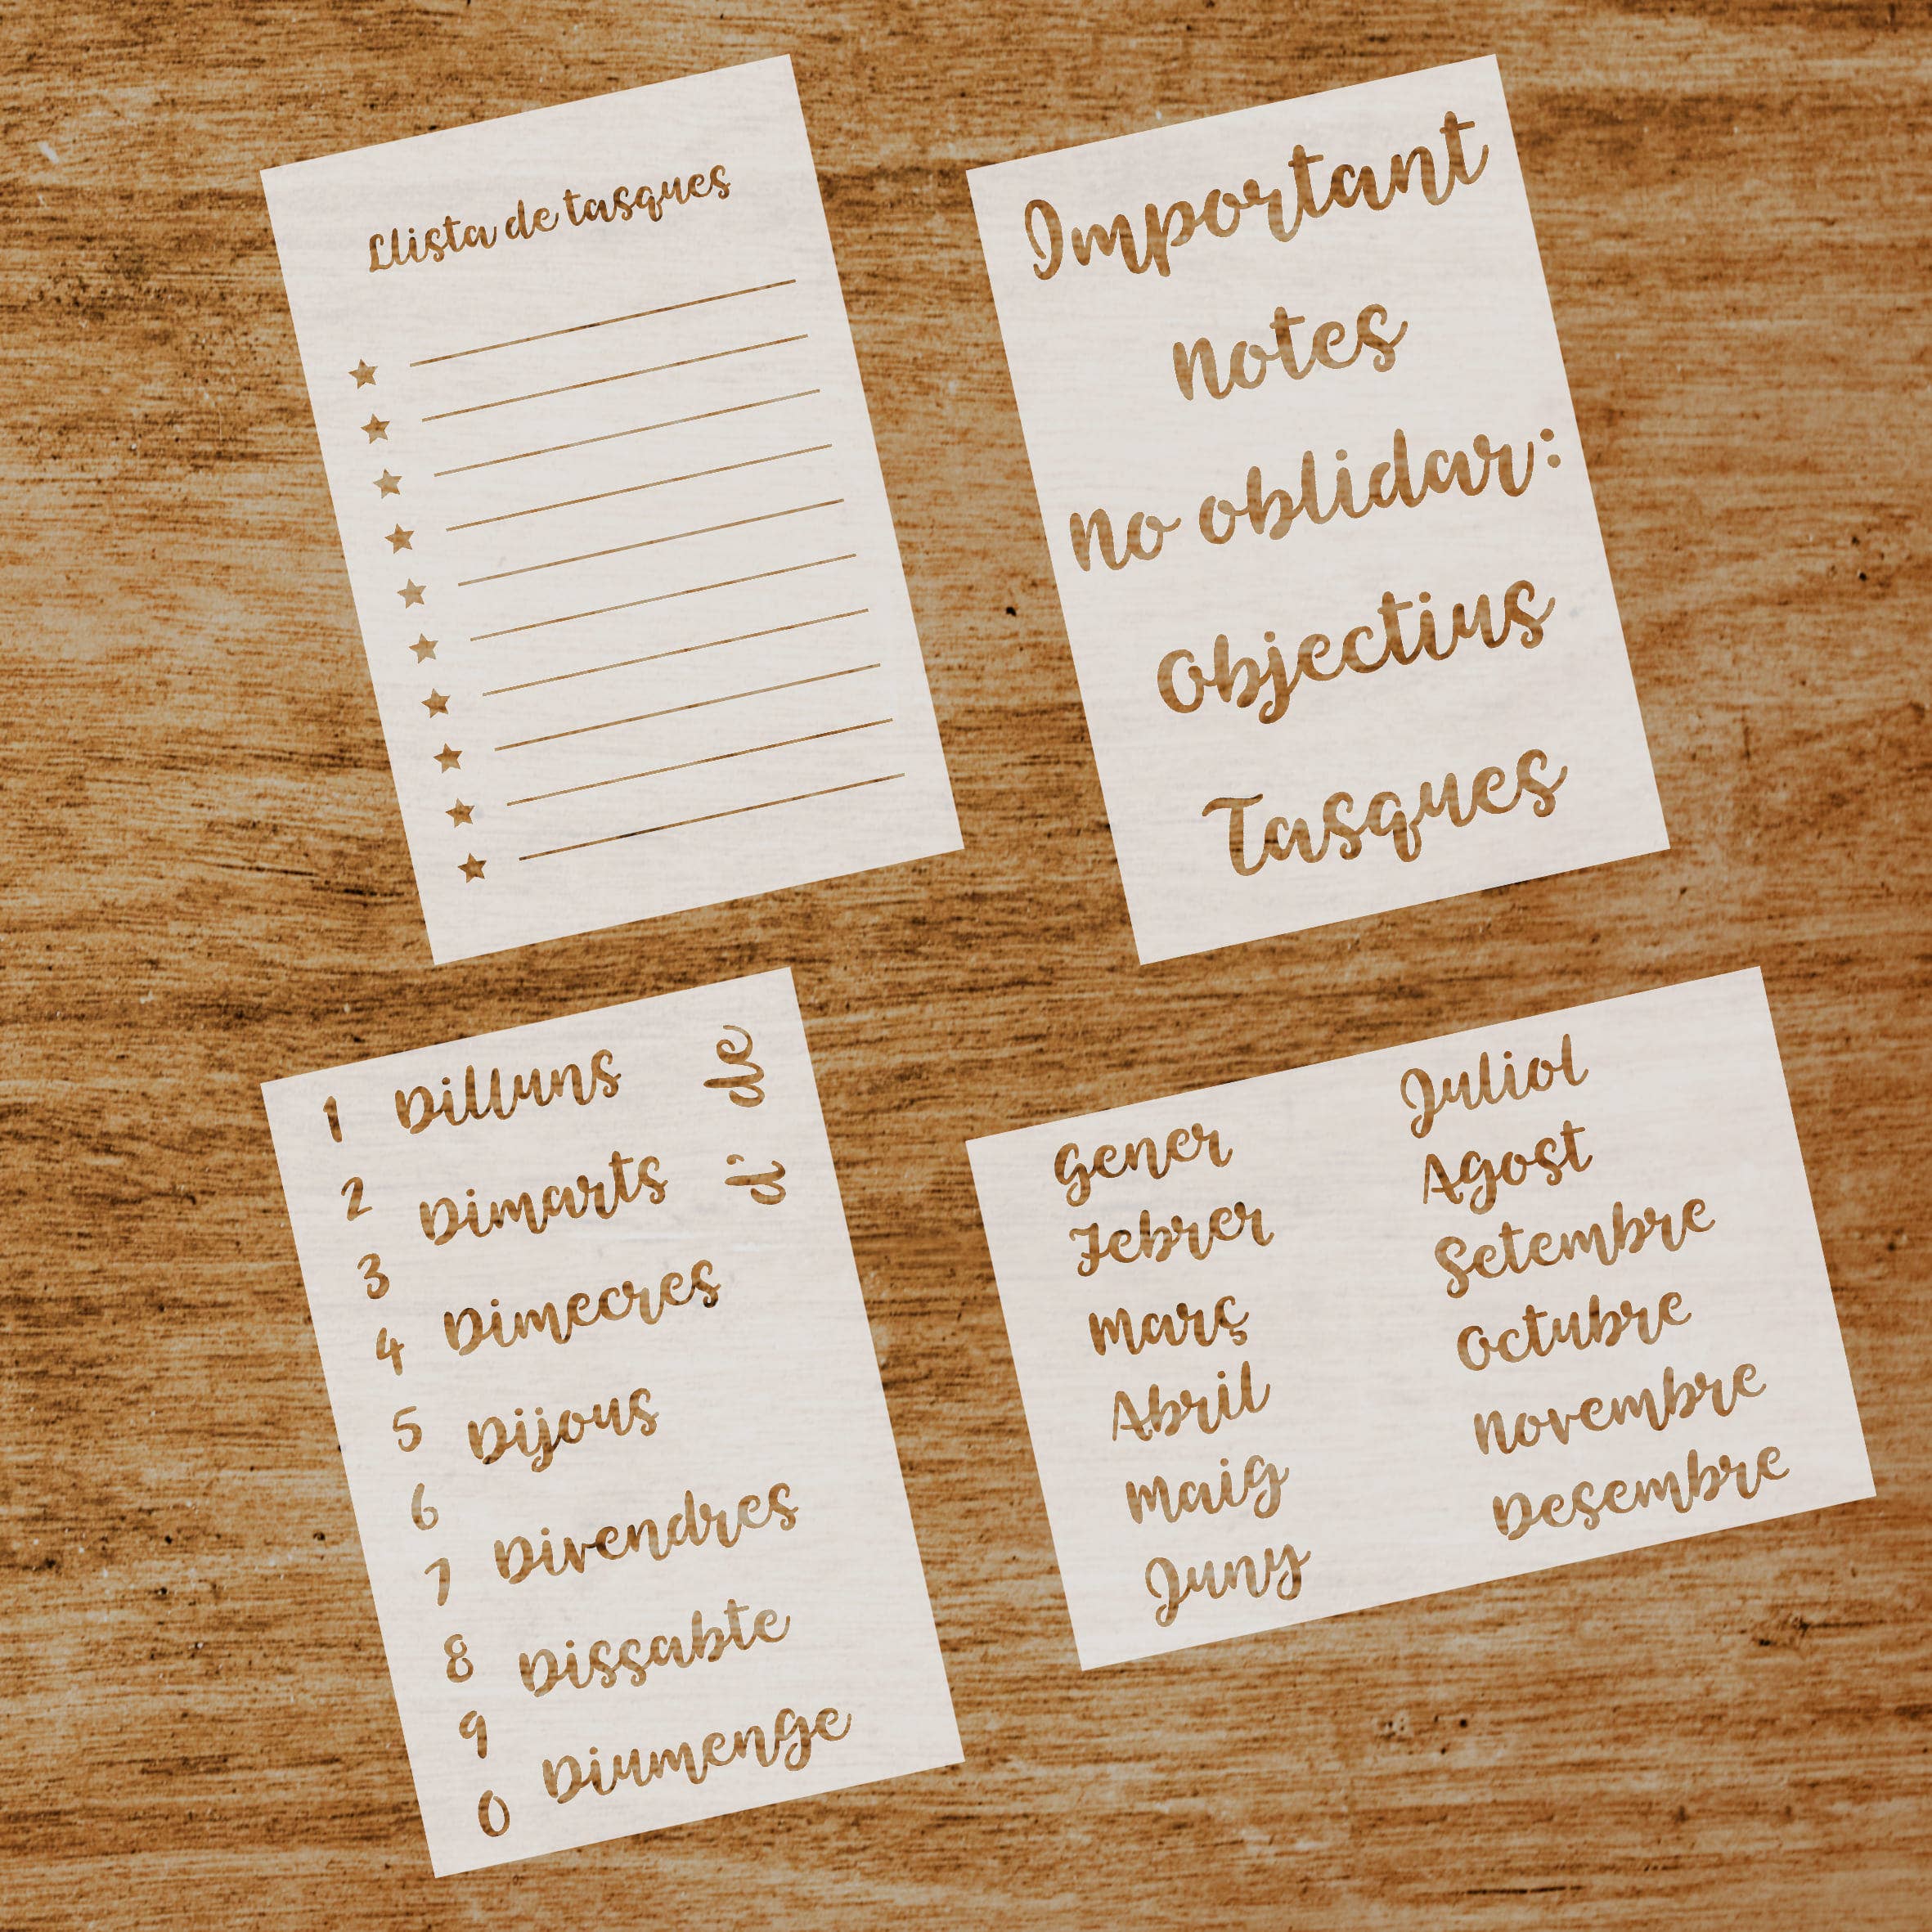 Llista de tasques
Important
Notes
No oblidar:
Objectius
Tasques
1 Dilluns
2 Dimarts
3 Dimecres
4 Dijous
5 Divendres
6 Dissabte
7 Diumenge
8
9
0
de
d'
Gener
Febrer
Març
Abril
Maig
Juny
Juliol
Agost
Setembre
Octubre
Novembre
Desembre